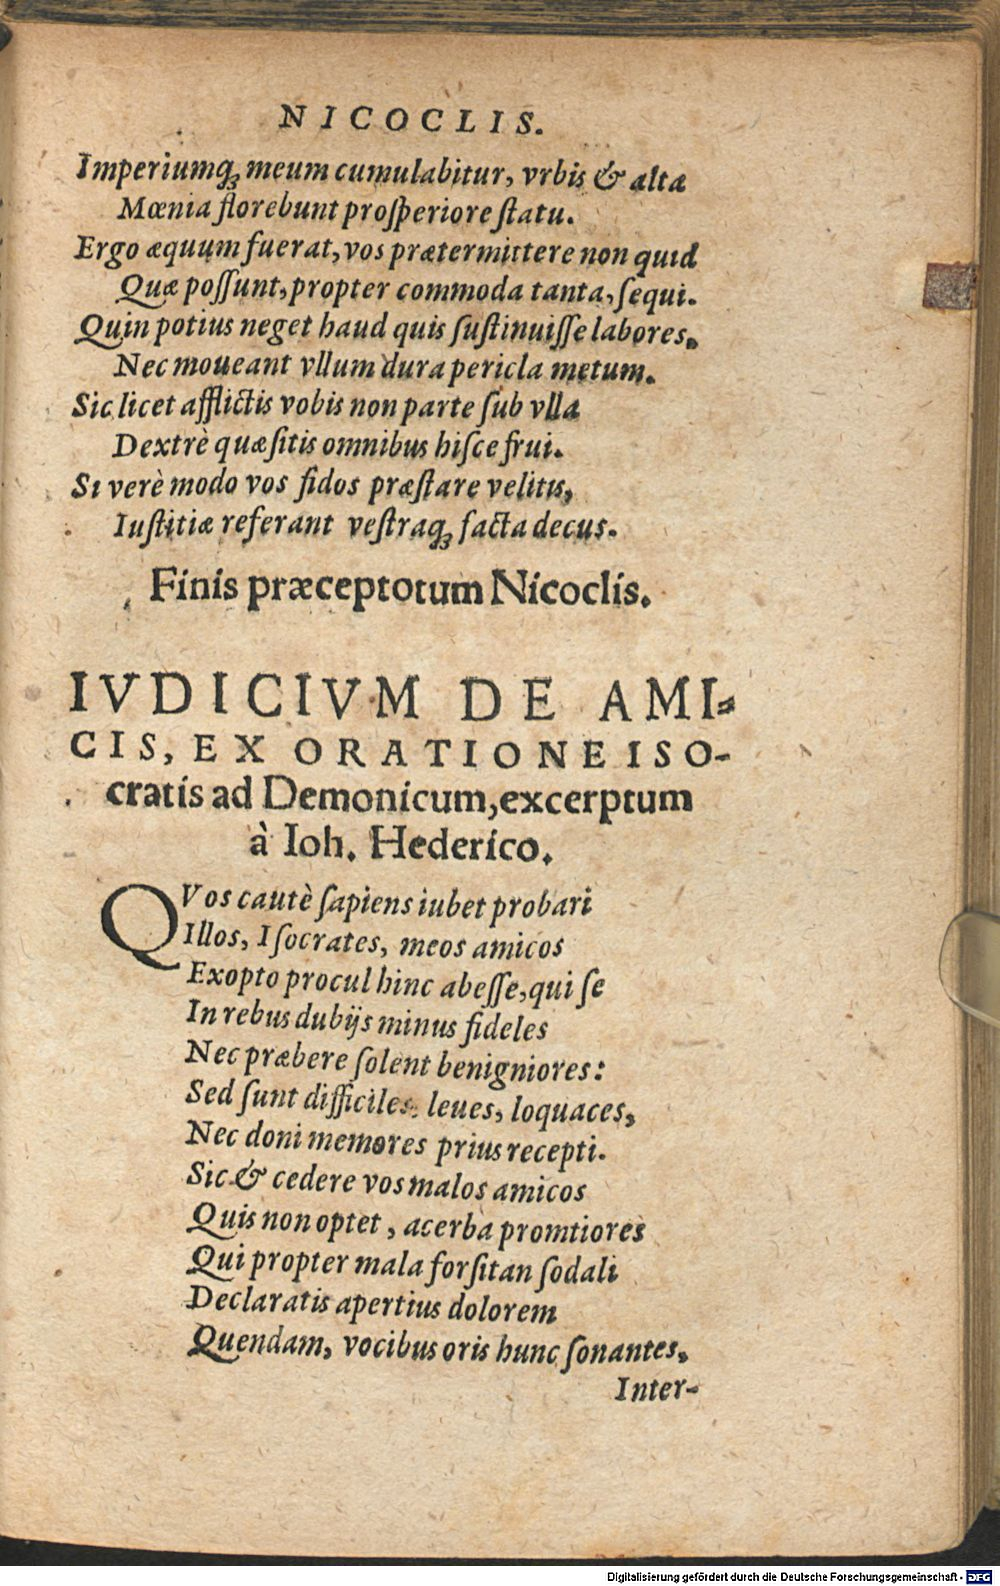 NICOCLIS.
Imperiumq́ꝫ meum cumulabitur, vrbis & alta
Mœnia florebunt proſperiore ſtatu.
Ergo æquum fuerat, vos prætermittere non quid
Quæ poſſunt, propter commoda tanta, ſequi.
Quin potius neget haud quis ſuſtinuiſſe labores,
Nec moueant vllum dura pericla metum.
Sic licet afflictis vobis non parte ſub vlla
Dextrè quæſitis omnibus hiſce frui.
Si verè modo vos fidos præſtare velitis,
Iuſtitiæ referant veſtraq́ꝫ facta decus.
Finis præceptotum Nicoclis.
IVDICIVM DE AMI-
CIS, EX ORATIONE ISO-
cratis ad Demonicum, excerptum
à Ioh. Hederico.
QVos cautè ſapiens iubet probari
Illos, Iſocrates, meos amicos
Exopto procul hinc abeſſe, qui ſe
In rebus dubijs minus fideles
Nec præbere ſolent benigniores:
Sed ſunt difficiles, leues, loquaces,
Nec doni memores prius recepti.
Sic & cedere vos malos amicos
Quis non optet, acerba promtiores
Qui propter mala forſitan ſodali
Declaratis apertius dolorem
Quendam, vocibus oris hunc ſonantes,
Inter-
Digitalisierung gefördert durch die Deutsche Forschungsgemeinschaft - DFG